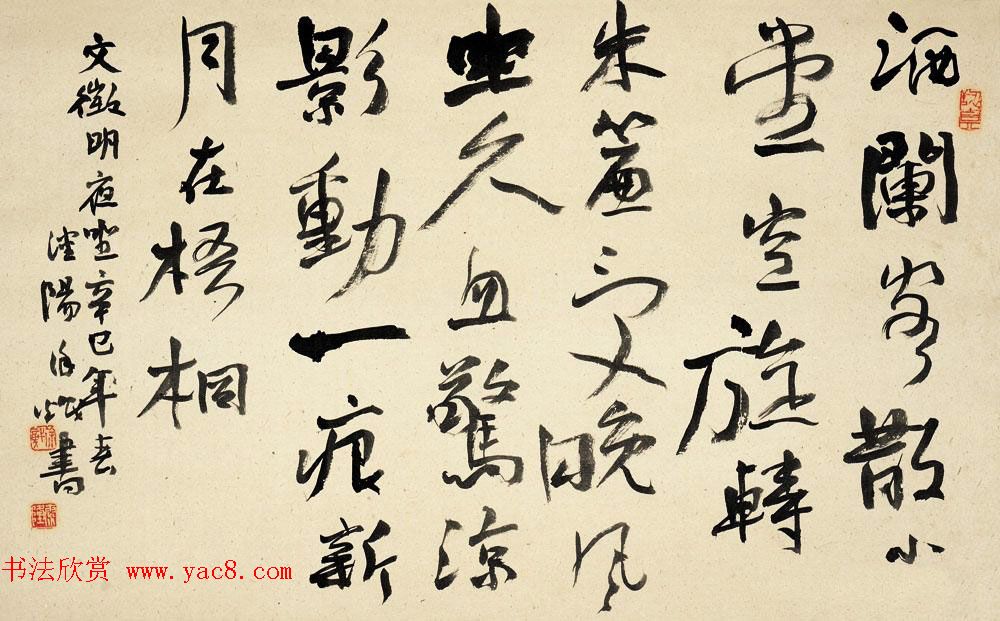 酒闌客散小
堂空旋轉
朱簾受晚風
坐久忽驚涼
影動一痕新
月在梧桐
文徵明夜坐辛巳年春
陽徐書
书法欣赏 www.yac8.com